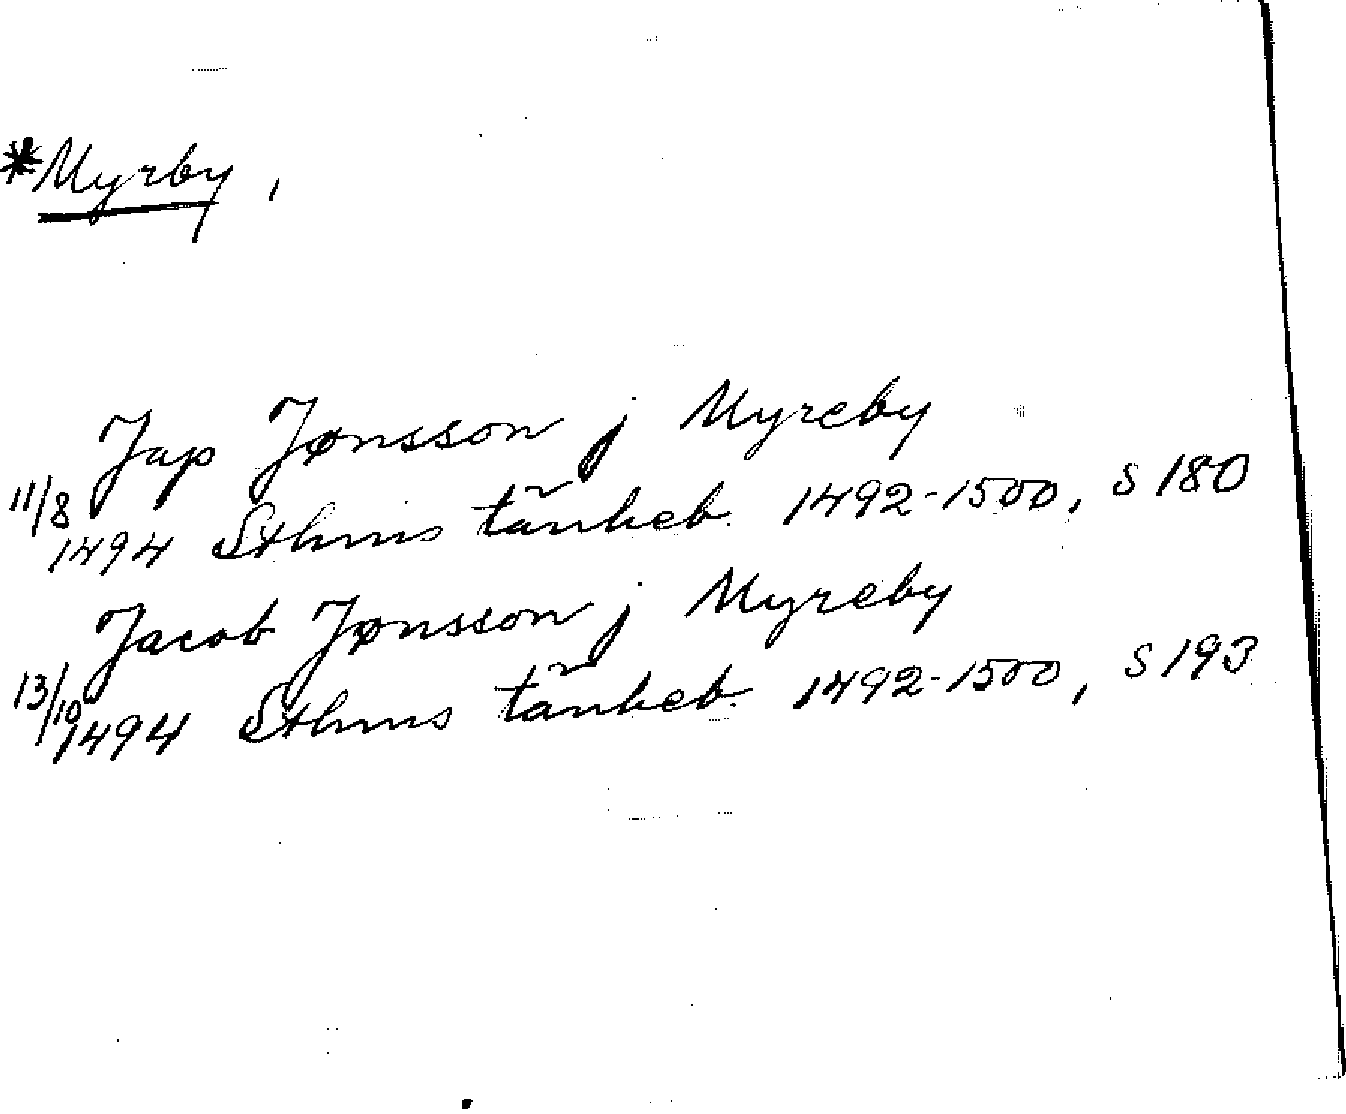 *Myrby,
Jap Jønsson j Myreby
11/8 1494 Sthms tänkeb. 1492-1500, s 180
Jacob Jønsson j Myreby
13/10 1494 Sthms tänkeb. 1492-1500, s 193